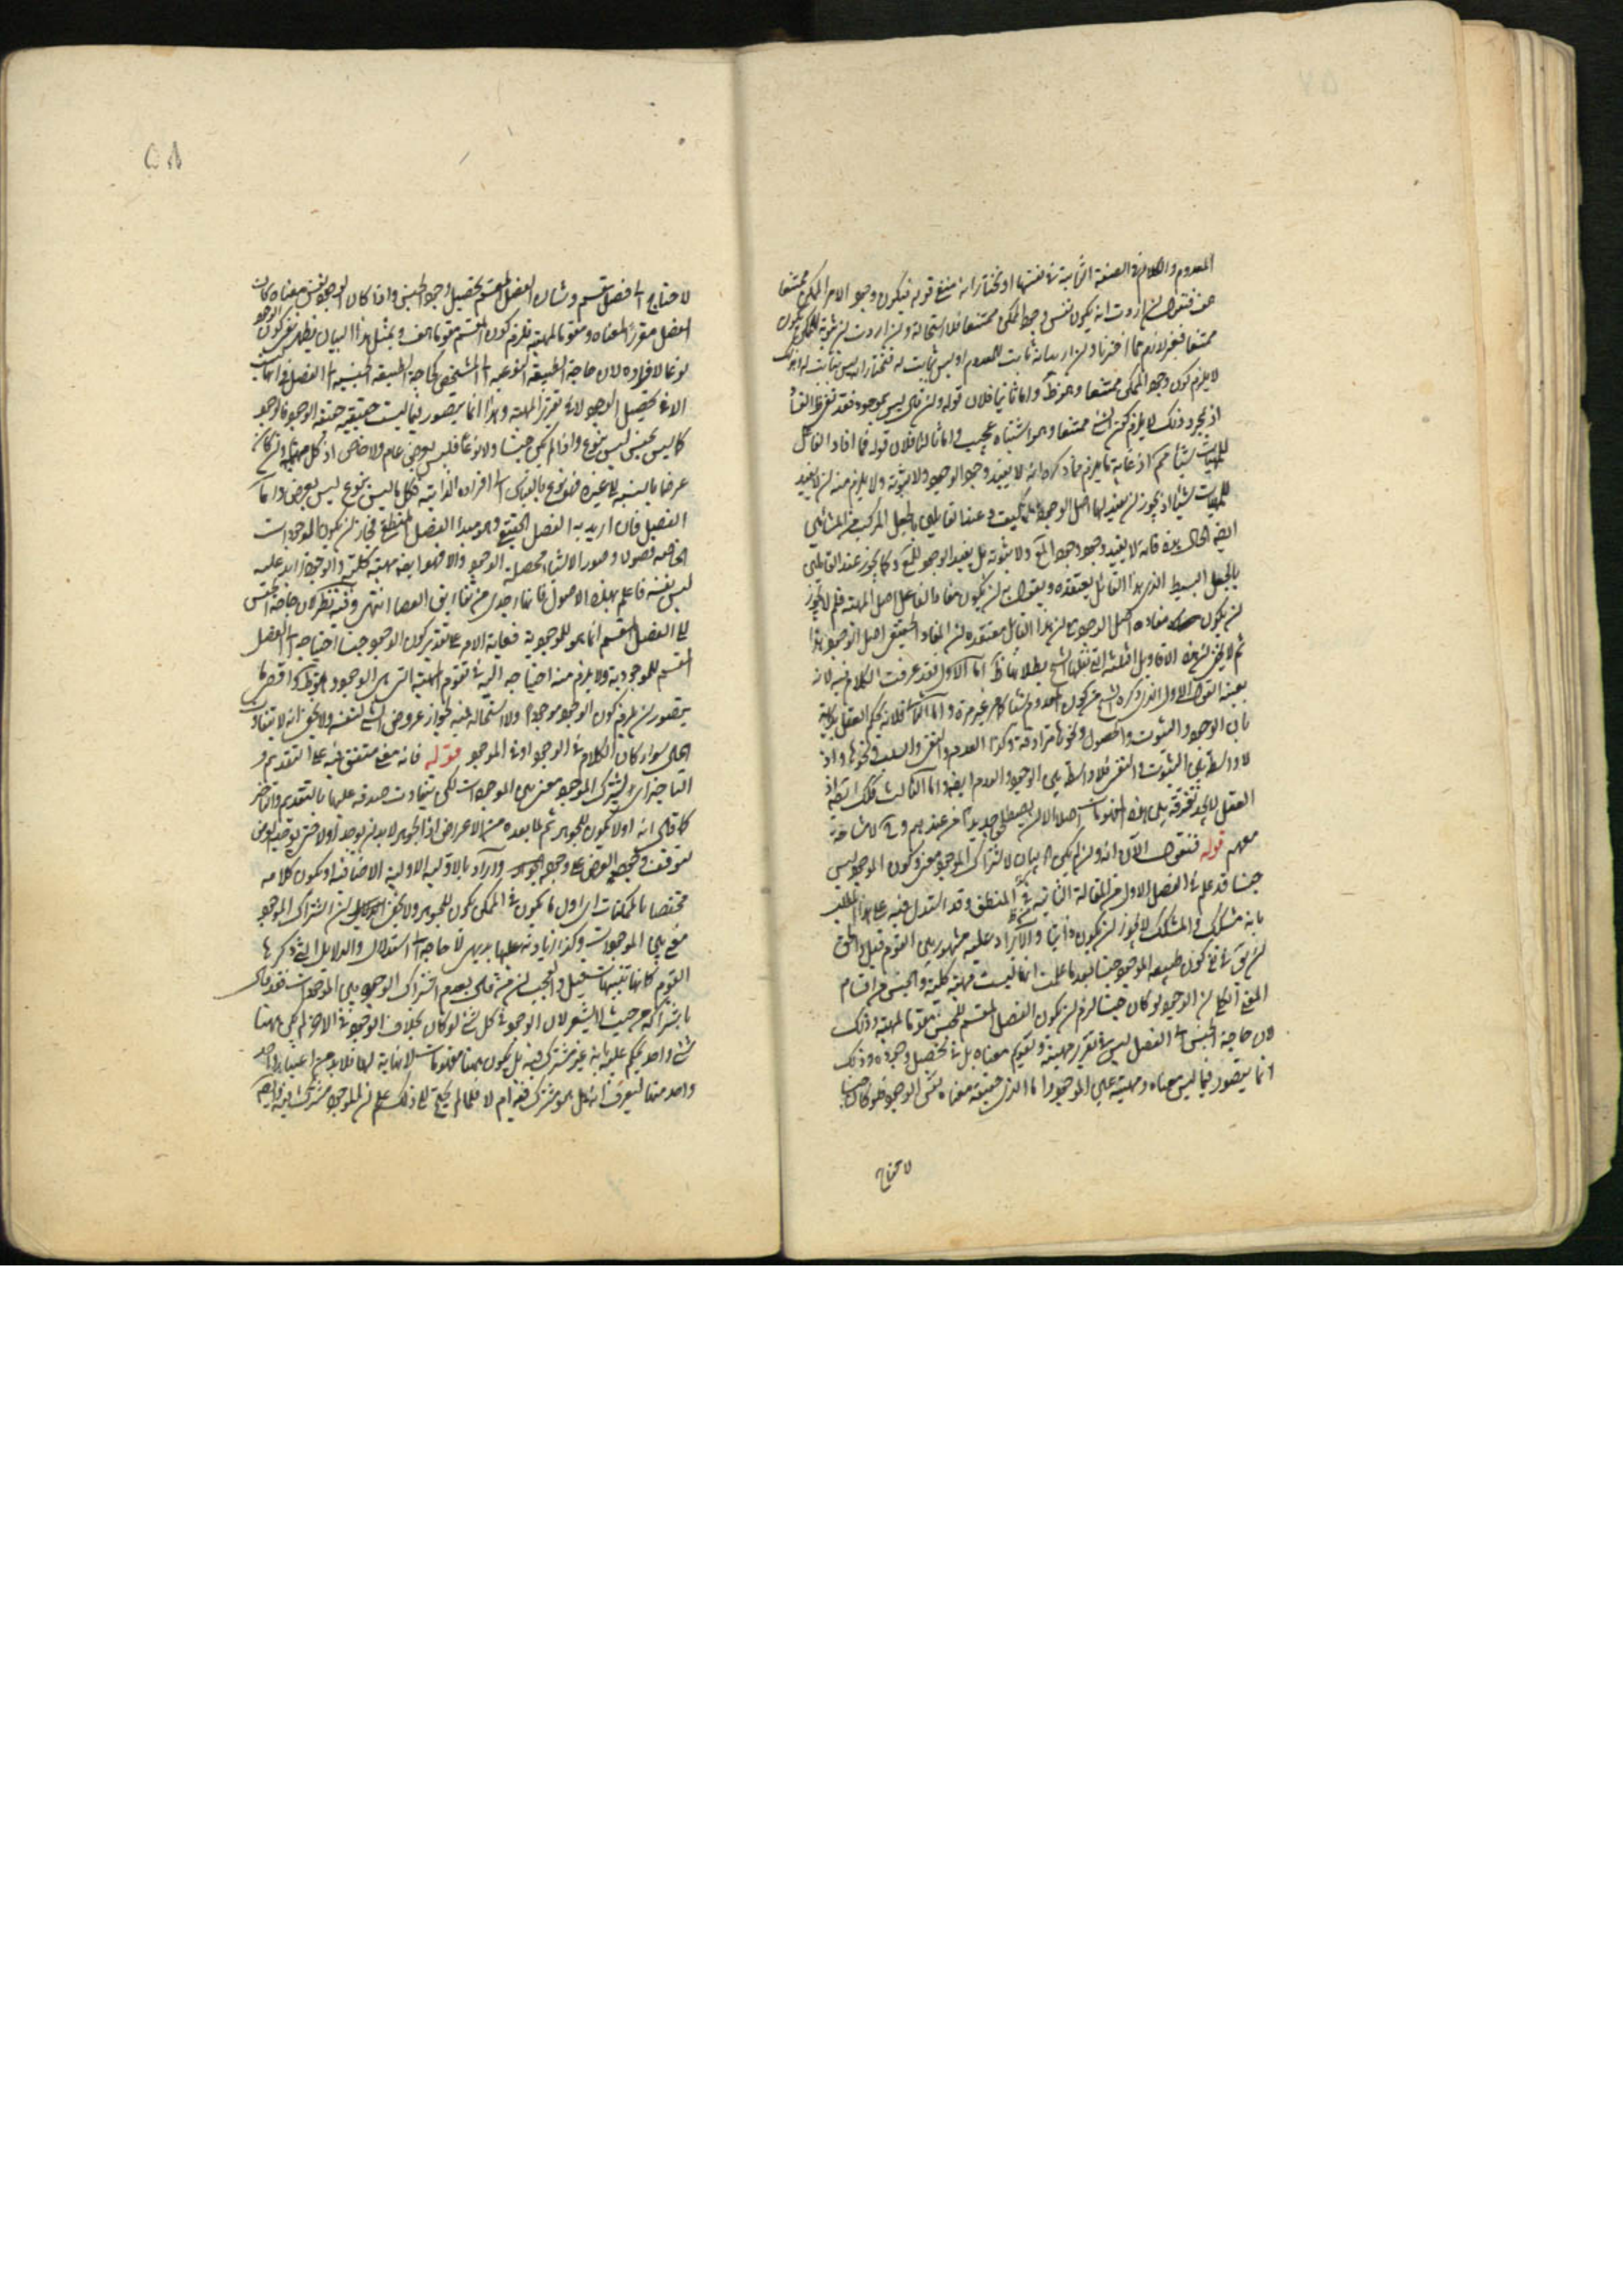 المعدوم والكلام في الصفة الثابتة في نفسها او نختار انه منفي قوله فيكون وجود الامر الممكن ممتنعا
اردت انه يكون نفس وجود الممكن ممتنعا فلا استحالة وان اردت ان ثبوته للممكن يكون
ممتنعا فغير لازم مما اخترناه وان اريد انه ثابت للمعدوم او ليس ثابت له فنختار انه ليس بثابت له
لا يلزم كون وجود الممكن ممتنعا وهو ظ واما ثانيا فلان قوله وان كان ليس بموجود فقد
اذ بمجرد ذلك لا يلزم كون الشيء ممتنعا وهو اشتباه عجيب واما ثالثا فلان قوله فما افاد الفاعل
للمهيات شيئا اذ غاية ما يلزم مما ذكره انه لا يفيد وجود الوجود ولا ثبوته ولا يلزم منه ان لا يفيد
للمهيات شيئا اذ يجوز ان يفيد لها اصل الوجود كيف وعند القايلين بالجعل المركب من المشائين
ايضا الحال هذه فانه لا يفيد وجود وجود ولا ثبوته بل يفيد الوجود وكما يجوز عند القايلين
بالجعل البسيط الذي هذا القائل يعتقده ويقول به ان يكون مفاد الفاعل اصل المهية فلم لا يجوز
ان يكون مفاده اصل الوجود مع ان هذا القائل معتقده ان المفاد الحقيقي اصل الوجود هذا
ثم لا يخفى ان هذه الاقاويل الثلثة التي نقلها الشيخ بطلانها ظ اما الاول فقد عرفت الكلام فيه لانه
بعينه القول الاول الذي ذكره الشيخ من كون المعدوم شيئا غير مرة واما الثاني فلانه يحكم العقل بداهة
بان الوجود والثبوت والحصول ونحوها مترادفة وكذا العدم والنفي والسلب ونحوها واذ
لا واسطة بين الثبوت والنفي فلا واسطة بين الوجود والعدم ايضا واما الثالث فكذلك ايضا اذ
العقل لا يجد تفرقة بين هذه المفهومات اصلا الا ان يصطلح جديد آخر عندهم وح لا مشاحة
معهم قوله فنقول الآن انه وان لم يكن هذا بيان لاشتراك الموجود معنى وكون الموجود ليس
جنسا قد علم في الفصل الاول من المقالة الثانية من المنطق وقد استدل فيه على هذا المطلب
بانه مشكك والمشكك لا يجوز ان يكون ذاتيا والايراد عليه مشهور بين القوم قيل والحق
ان يق في نفي كون طبيعة الموجود جنسا بعد ما علمت انها ليست مهية كلية والجنس من اقسام
المعنى الكلي ان الوجود لو كان جنسا لزم ان يكون الفصل المقسم للجنس مقوما لمهيته وذلك
لان حاجة الجنس الى الفصل ليس في تقرر مهيته وتقويم معناه بل في تحصيل وجوده وذلك
انما يتصور فيما ليس معناه ومهيته عين الموجود واما الذي حقيقة معناه نفس الوجود فلو كان جنسا
لاحتاج
لاحتاج الى فصل مقسم وشان الفصل المقسم تحصيل وجود الجنس واذا كان الوجود نفس معناه كان
الفصل مقررا لمعناه ومقوما لمهيته فلزم كون المقسم مقوما هف وبمثل هذا البيان يظهر نفي كون الوجود
نوعا لافراده لان حاجة الطبيعة النوعية الى المشخص كحاجة الطبيعة الجنسية الى الفصل في انها ليست
الا في تحصيل الوجود لا في تقرر المهية وهذا انما يتصور فيما ليست حقيقته حقيقة الوجود فالوجود
كما ليس بجنس ليس بنوع واذا لم يكن جنسا ولا نوعا فليس بعرض عام ولا خاص اذ كل منهما وان كان
عرضا بالنسبة الى غيره فهو نوع بالقياس الى افراده الذاتية فكل ما ليس بنوع ليس بعرض واما
الفصل فان اريد به الفصل الحقيقي وهو مبدأ الفصل المنطقي فجاز ان يكون الموجودات
الخاصة فصولا وصورا لاشياء محصلة الوجود والا فهو ايضا مهية كلية والوجود زايد عليه
ليس نفسه فاعلم بهذه الاصول فانها اجدى من تفاريق العصا انتهى وفيه نظر لان حاجة الجنس
الى الفصل المقسم انما هو للموجودية فغاية الامر على تقدير كون الوجود جنسا احتياجه الى الفصل
المقسم للموجودية ولا يلزم منه احتياجه اليه في تقوم المهية التي هي الوجود وهو ظ واقصى ما
يتصور ان يلزم كون الوجود موجودا ولا استحالة فيه لجواز عروض الشيء لنفسه ولا يخفى انه لا يتفاوت
الحال سواء كان الكلام في الوجود او في الموجود قوله فانه معنى متفق فيه على التقديم و
التاخير اي يشترك الموجود معنى بين الموجودات لكن يتفاوت صدقه عليها بالتقديم والتاخر
كما قال انه اولا يكون للجوهر ثم لما بعده من الاعراض اذ الجوهر لا بد ان يوجد اولا حتى يوجد العرض
لتوقف وجود العرض على وجود الجوهر واراد بالاولية الاولية الاضافية او يكون كلامه
مختصا بالممكنات اي اول ما يكون في الممكن يكون للجوهر ولا يخفى ان اشتراك الموجود
معنى بين الموجودات وكذا زيادته عليها بديهي لا حاجة الى استدلال والدلايل التي ذكرها
القوم كانها تنبيهات قيل والعجب ان من قال بعدم اشتراك الوجود بين الموجودات فقد قال
باشتراكه من حيث لا يشعر لان الوجود في كل شيء لو كان بخلاف الوجود في الاخر لم يكن ههنا
شيء واحد يحكم عليه بانه غير مشترك فيه بل يكون ههنا مفهومات لا نهاية لها فلا بد من اعتبار واحد
واحد منها ليعرف انه هل هو مشترك فيه ام لا فلما لم يحتج الى ذلك علم ان الموجود مشترك فيه